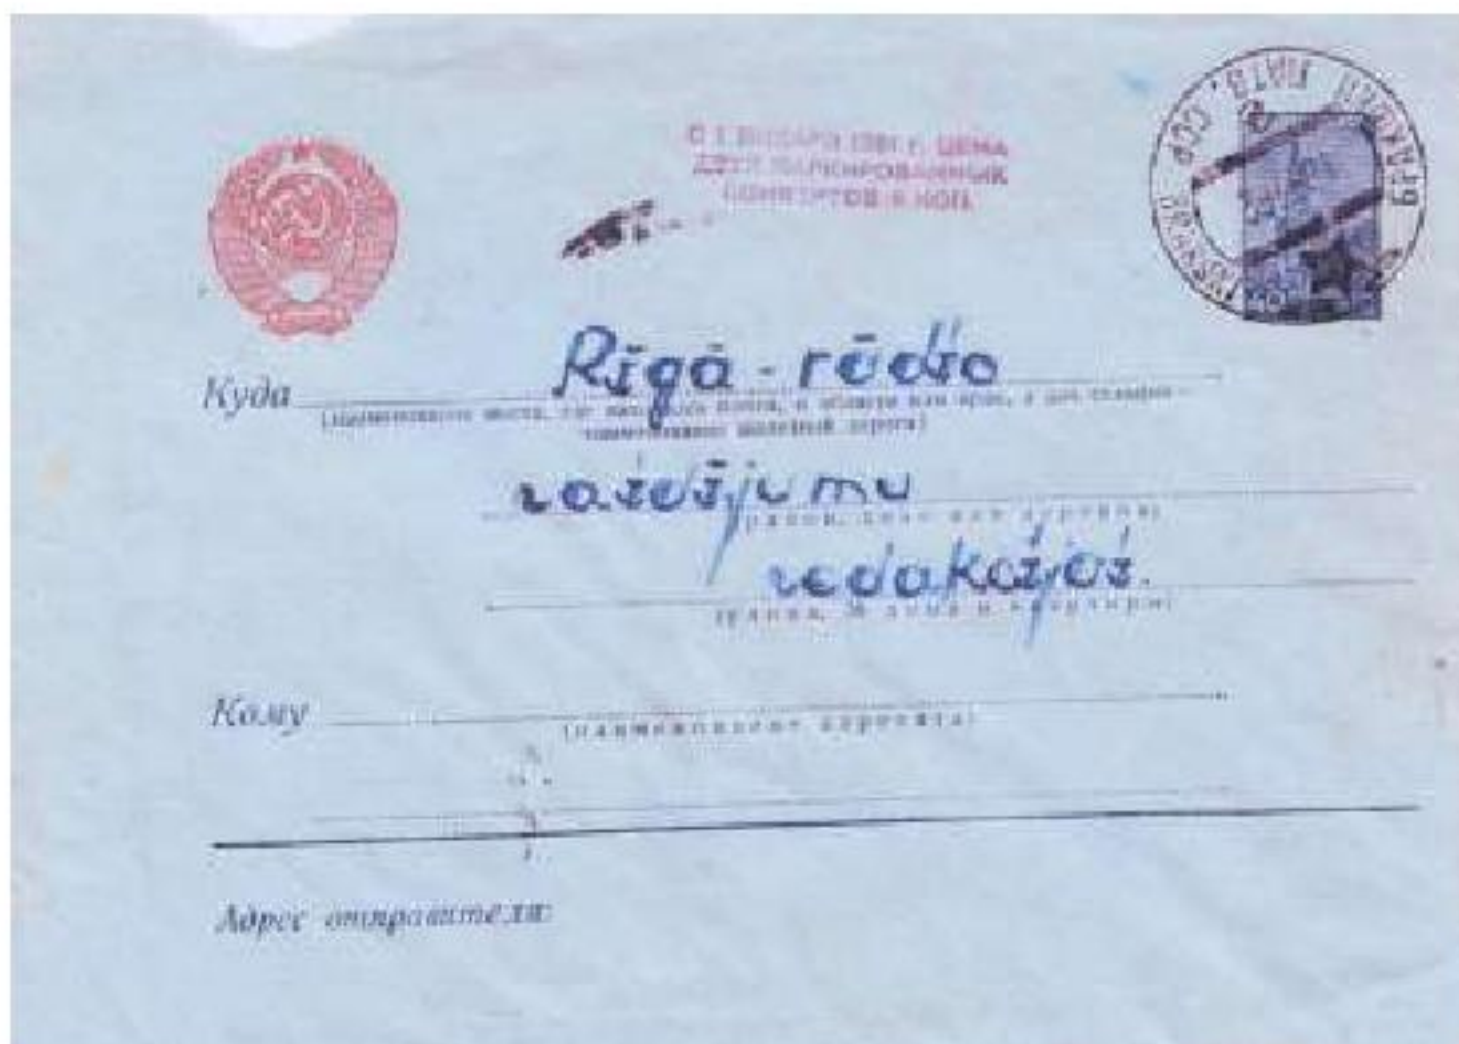 С 1 ЯНВАРЯ 1961 г. ЦЕНА
МАРКИРОВАННЫХ
КОНВЕРТОВ КОП.
ЛАТВ. ССР
Куда Rīgā - rādio
(наименование места, где находится почта, и области или края, а для станции -
наименование железной дороги)
ražojumu
(район, село или деревня)
redakcijai.
(улица, № дома и квартиры)
Кому
(наименование адресата)
Адрес отправителя: